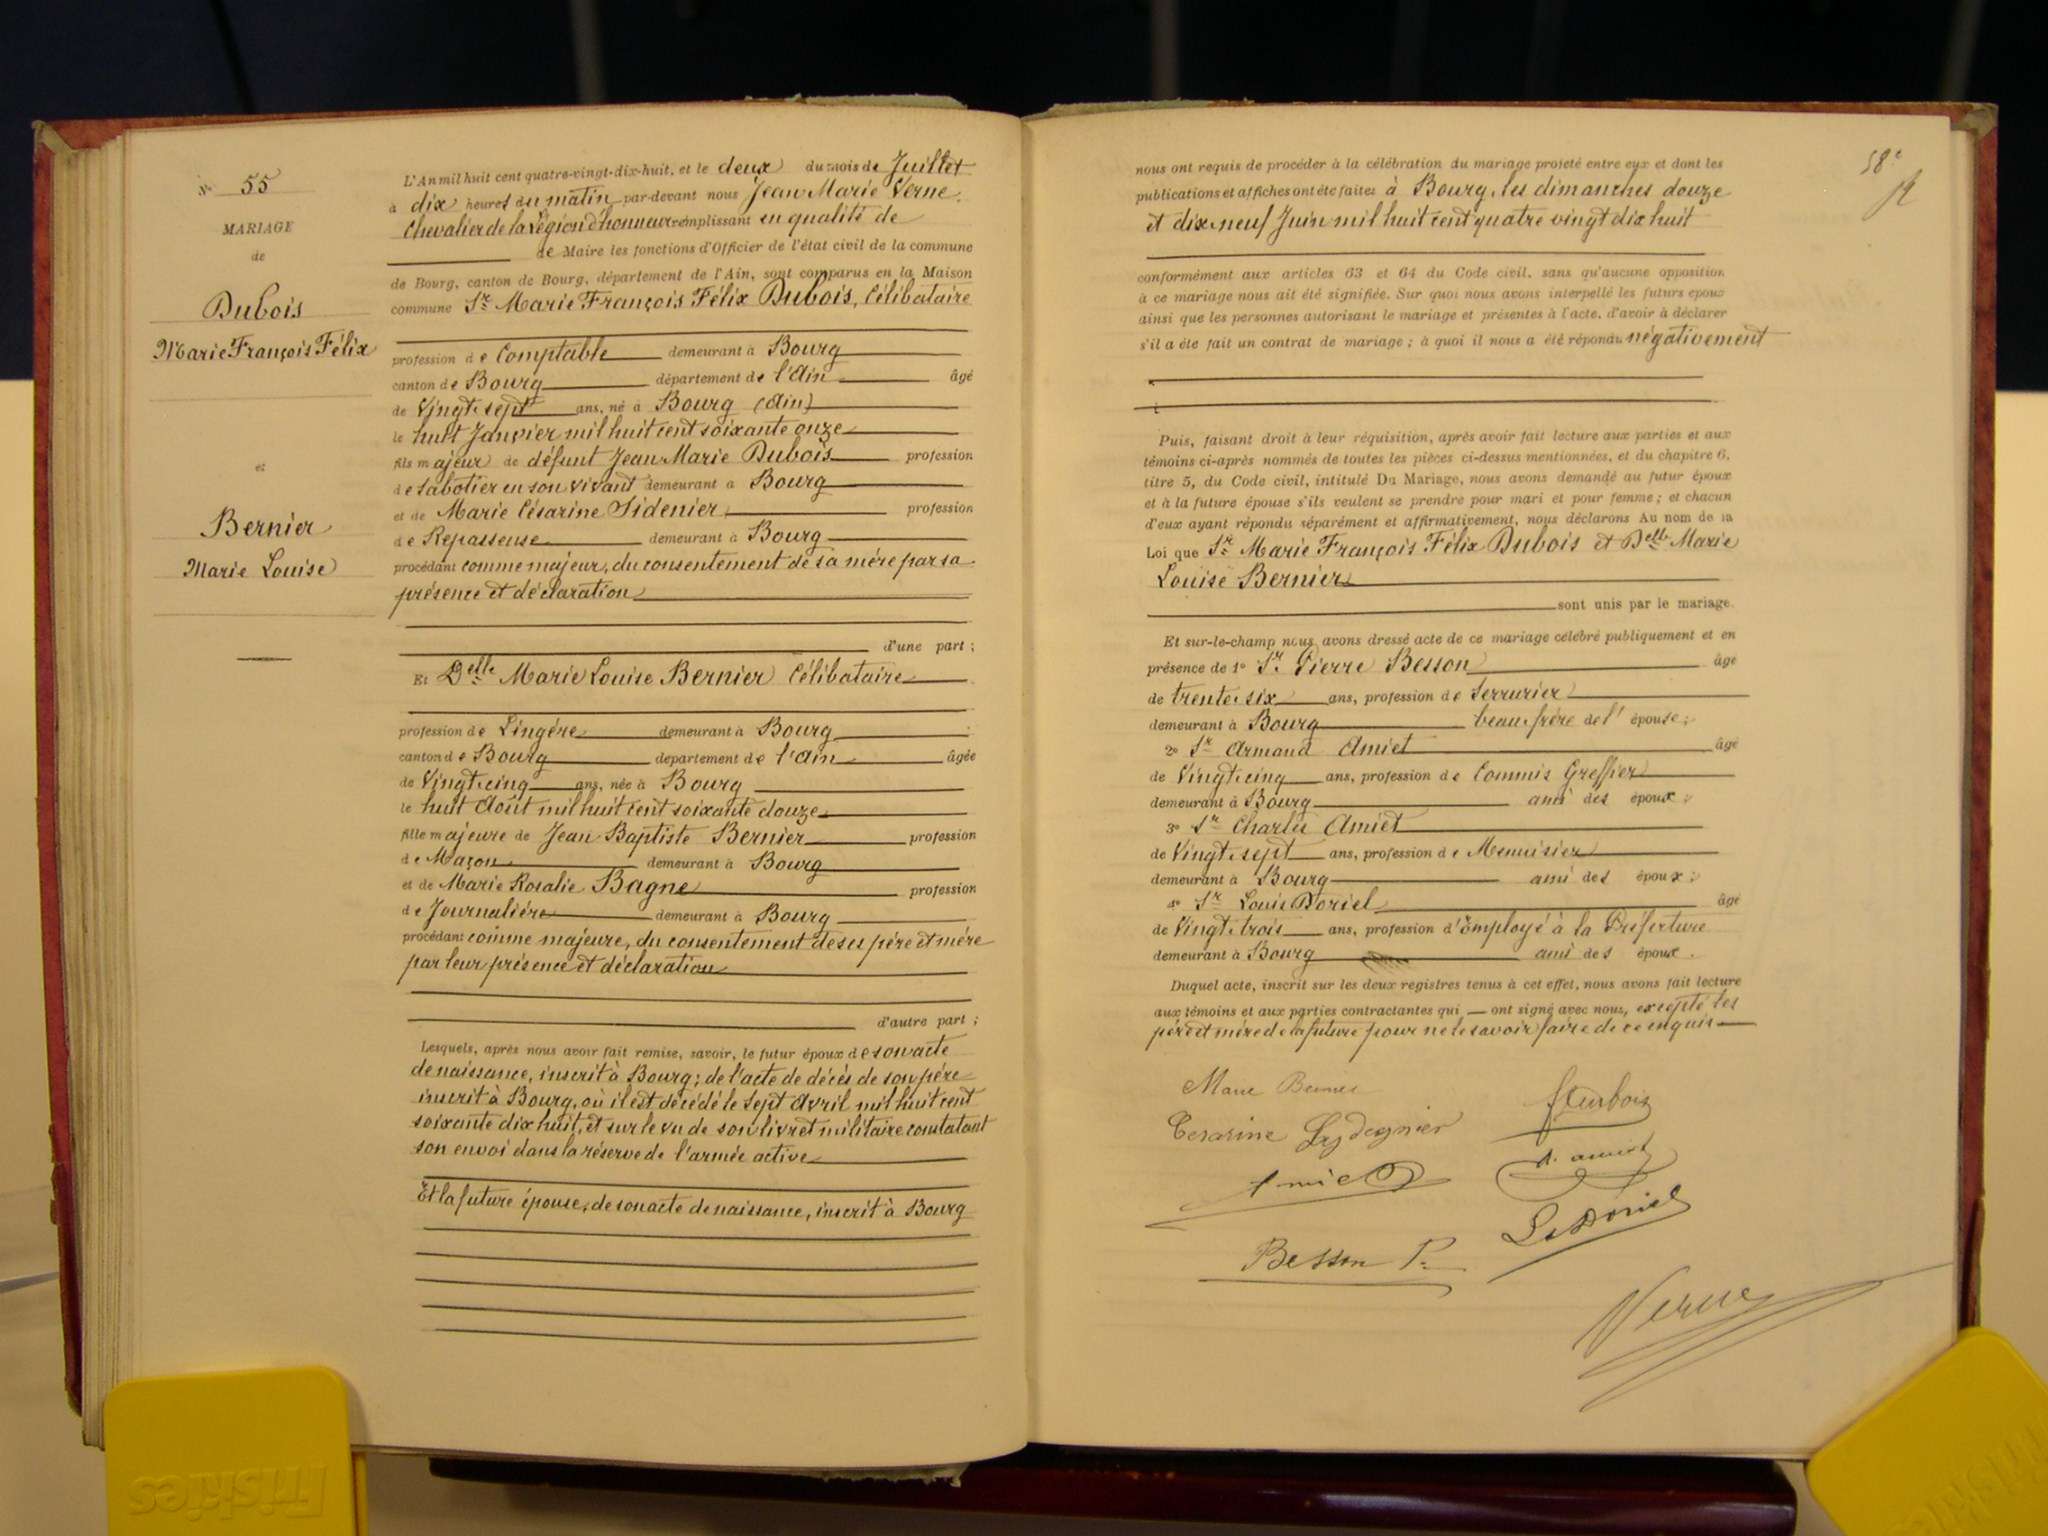 N° 55
MARIAGE
de
Dubois
Marie François Félix
et
Bernier
Marie Louise
L'An mil huit cent quatre-vingt-dix-huit, et le deux du mois de Juillet
à dix heures du matin par-devant nous Jean Marie Verne,
Chevalier de la Légion d'honneur remplissant en qualité de
de Maire les fonctions d'Officier de l'état civil de la commune
de Bourg, canton de Bourg, département de l'Ain, sont comparus en la Maison
commune Sr Marie François Félix Dubois, Célibataire
profession de Comptable demeurant à Bourg
canton de Bourg département de l'Ain âgé
de Vingt-sept ans, né à Bourg (Ain)
le huit Janvier mil huit cent soixante onze
fils majeur de défunt Jean Marie Dubois profession
de sabotier en son vivant demeurant à Bourg
et de Marie Césarine Sidenier profession
de Repasseuse demeurant à Bourg
procédant comme majeur, du consentement de sa mère par sa
présence et déclaration
d'une part ;
Et Delle Marie Louise Bernier Célibataire
profession de Lingère demeurant à Bourg
canton de Bourg département de l'Ain âgée
de Vingt-cinq ans, née à Bourg
le huit Août mil huit cent soixante douze
fille majeure de Jean Baptiste Bernier profession
de Maçon demeurant à Bourg
et de Marie Rosalie Bagne profession
de Journalière demeurant à Bourg
procédant comme majeure, du consentement de ses père et mère
par leur présence et déclaration
d'autre part ;
Lesquels, après nous avoir fait remise, savoir, le futur époux de son acte
de naissance, inscrit à Bourg ; de l'acte de décès de son père
inscrit à Bourg, où il est décédé le sept Avril mil huit cent
soixante dix huit, et sur le vu de son livret militaire constatant
son envoi dans la réserve de l'armée active
Et la future épouse, de son acte de naissance, inscrit à Bourg
58e
nous ont requis de procéder à la célébration du mariage projeté entre eux et dont les
publications et affiches ont été faites à Bourg, les dimanches douze
et dix-neuf Juin mil huit cent quatre vingt dix huit
conformément aux articles 63 et 64 du Code civil, sans qu'aucune opposition
à ce mariage nous ait été signifiée. Sur quoi nous avons interpellé les futurs époux
ainsi que les personnes autorisant le mariage et présentes à l'acte, d'avoir à déclarer
s'il a été fait un contrat de mariage ; à quoi il nous a été répondu négativement
Puis, faisant droit à leur réquisition, après avoir fait lecture aux parties et aux
témoins ci-après nommés de toutes les pièces ci-dessus mentionnées, et du chapitre 6,
titre 5, du Code civil, intitulé Du Mariage, nous avons demandé au futur époux
et à la future épouse s'ils veulent se prendre pour mari et pour femme ; et chacun
d'eux ayant répondu séparément et affirmativement, nous déclarons Au nom de la
Loi que Sr Marie François Félix Dubois et Delle Marie
Louise Bernier
sont unis par le mariage.
Et sur-le-champ nous avons dressé acte de ce mariage célébré publiquement et en
présence de 1° Sr Pierre Besson âgé
de trente-six ans, profession de Serrurier
demeurant à Bourg beau-frère de l'épouse ;
2° Sr Armand Amiet âgé
de Vingt-cinq ans, profession de Commis Greffier
demeurant à Bourg ami des époux ;
3° Sr Charles Amiet
de Vingt-sept ans, profession de Menuisier
demeurant à Bourg ami des époux ;
4° Sr Louis Doriel âgé
de Vingt-trois ans, profession d'Employé à la Préfecture
demeurant à Bourg ami des époux.
Duquel acte, inscrit sur les deux registres tenus à cet effet, nous avons fait lecture
aux témoins et aux parties contractantes qui ont signé avec nous, excepté les
père et mère de la future pour ne le savoir faire de ce enquis
Marie Bernier
Cesarine Lydegnier
A. amiet
L. Doriel
Besson P.
Verne
friskies
friskies